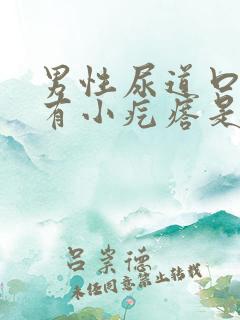 男性尿道口
有小疙瘩是
吕崇德
未经同意禁止转载